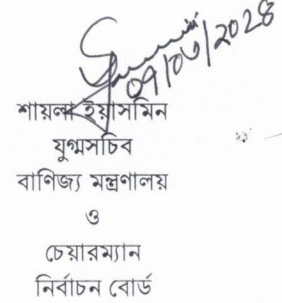 ০৭/০৬/২০২৪
শায়লা ইয়াসমিন
যুগ্মসচিব
বাণিজ্য মন্ত্রণালয়
ও
চেয়ারম্যান
নির্বাচন বোর্ড